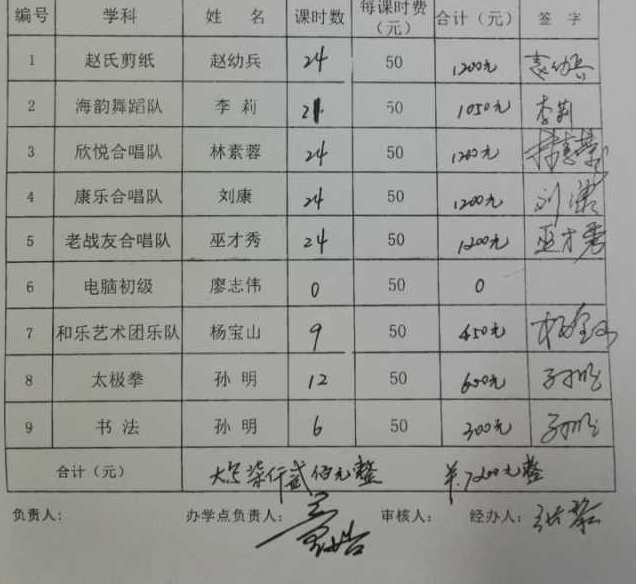 编号 学科 姓 名 课时数 每课时费（元） 合计（元） 签 字
1 赵氏剪纸 赵幼兵 24 50 1200元
2 海韵舞蹈队 李 莉 21 50 1050元 李莉
3 欣悦合唱队 林素蓉 24 50 1200元 林素蓉
4 康乐合唱队 刘康 24 50 1200元 刘康
5 老战友合唱队 巫才秀 24 50 1200元 巫才秀
6 电脑初级 廖志伟 0 50 0
7 和乐艺术团乐队 杨宝山 9 50 450元 杨宝山
8 太极拳 孙 明 12 50 600元 孙明
9 书 法 孙 明 6 50 300元 孙明
合计（元） 大写柒仟贰佰元整 ¥:7200元整
负责人： 办学点负责人： 审核人： 经办人：